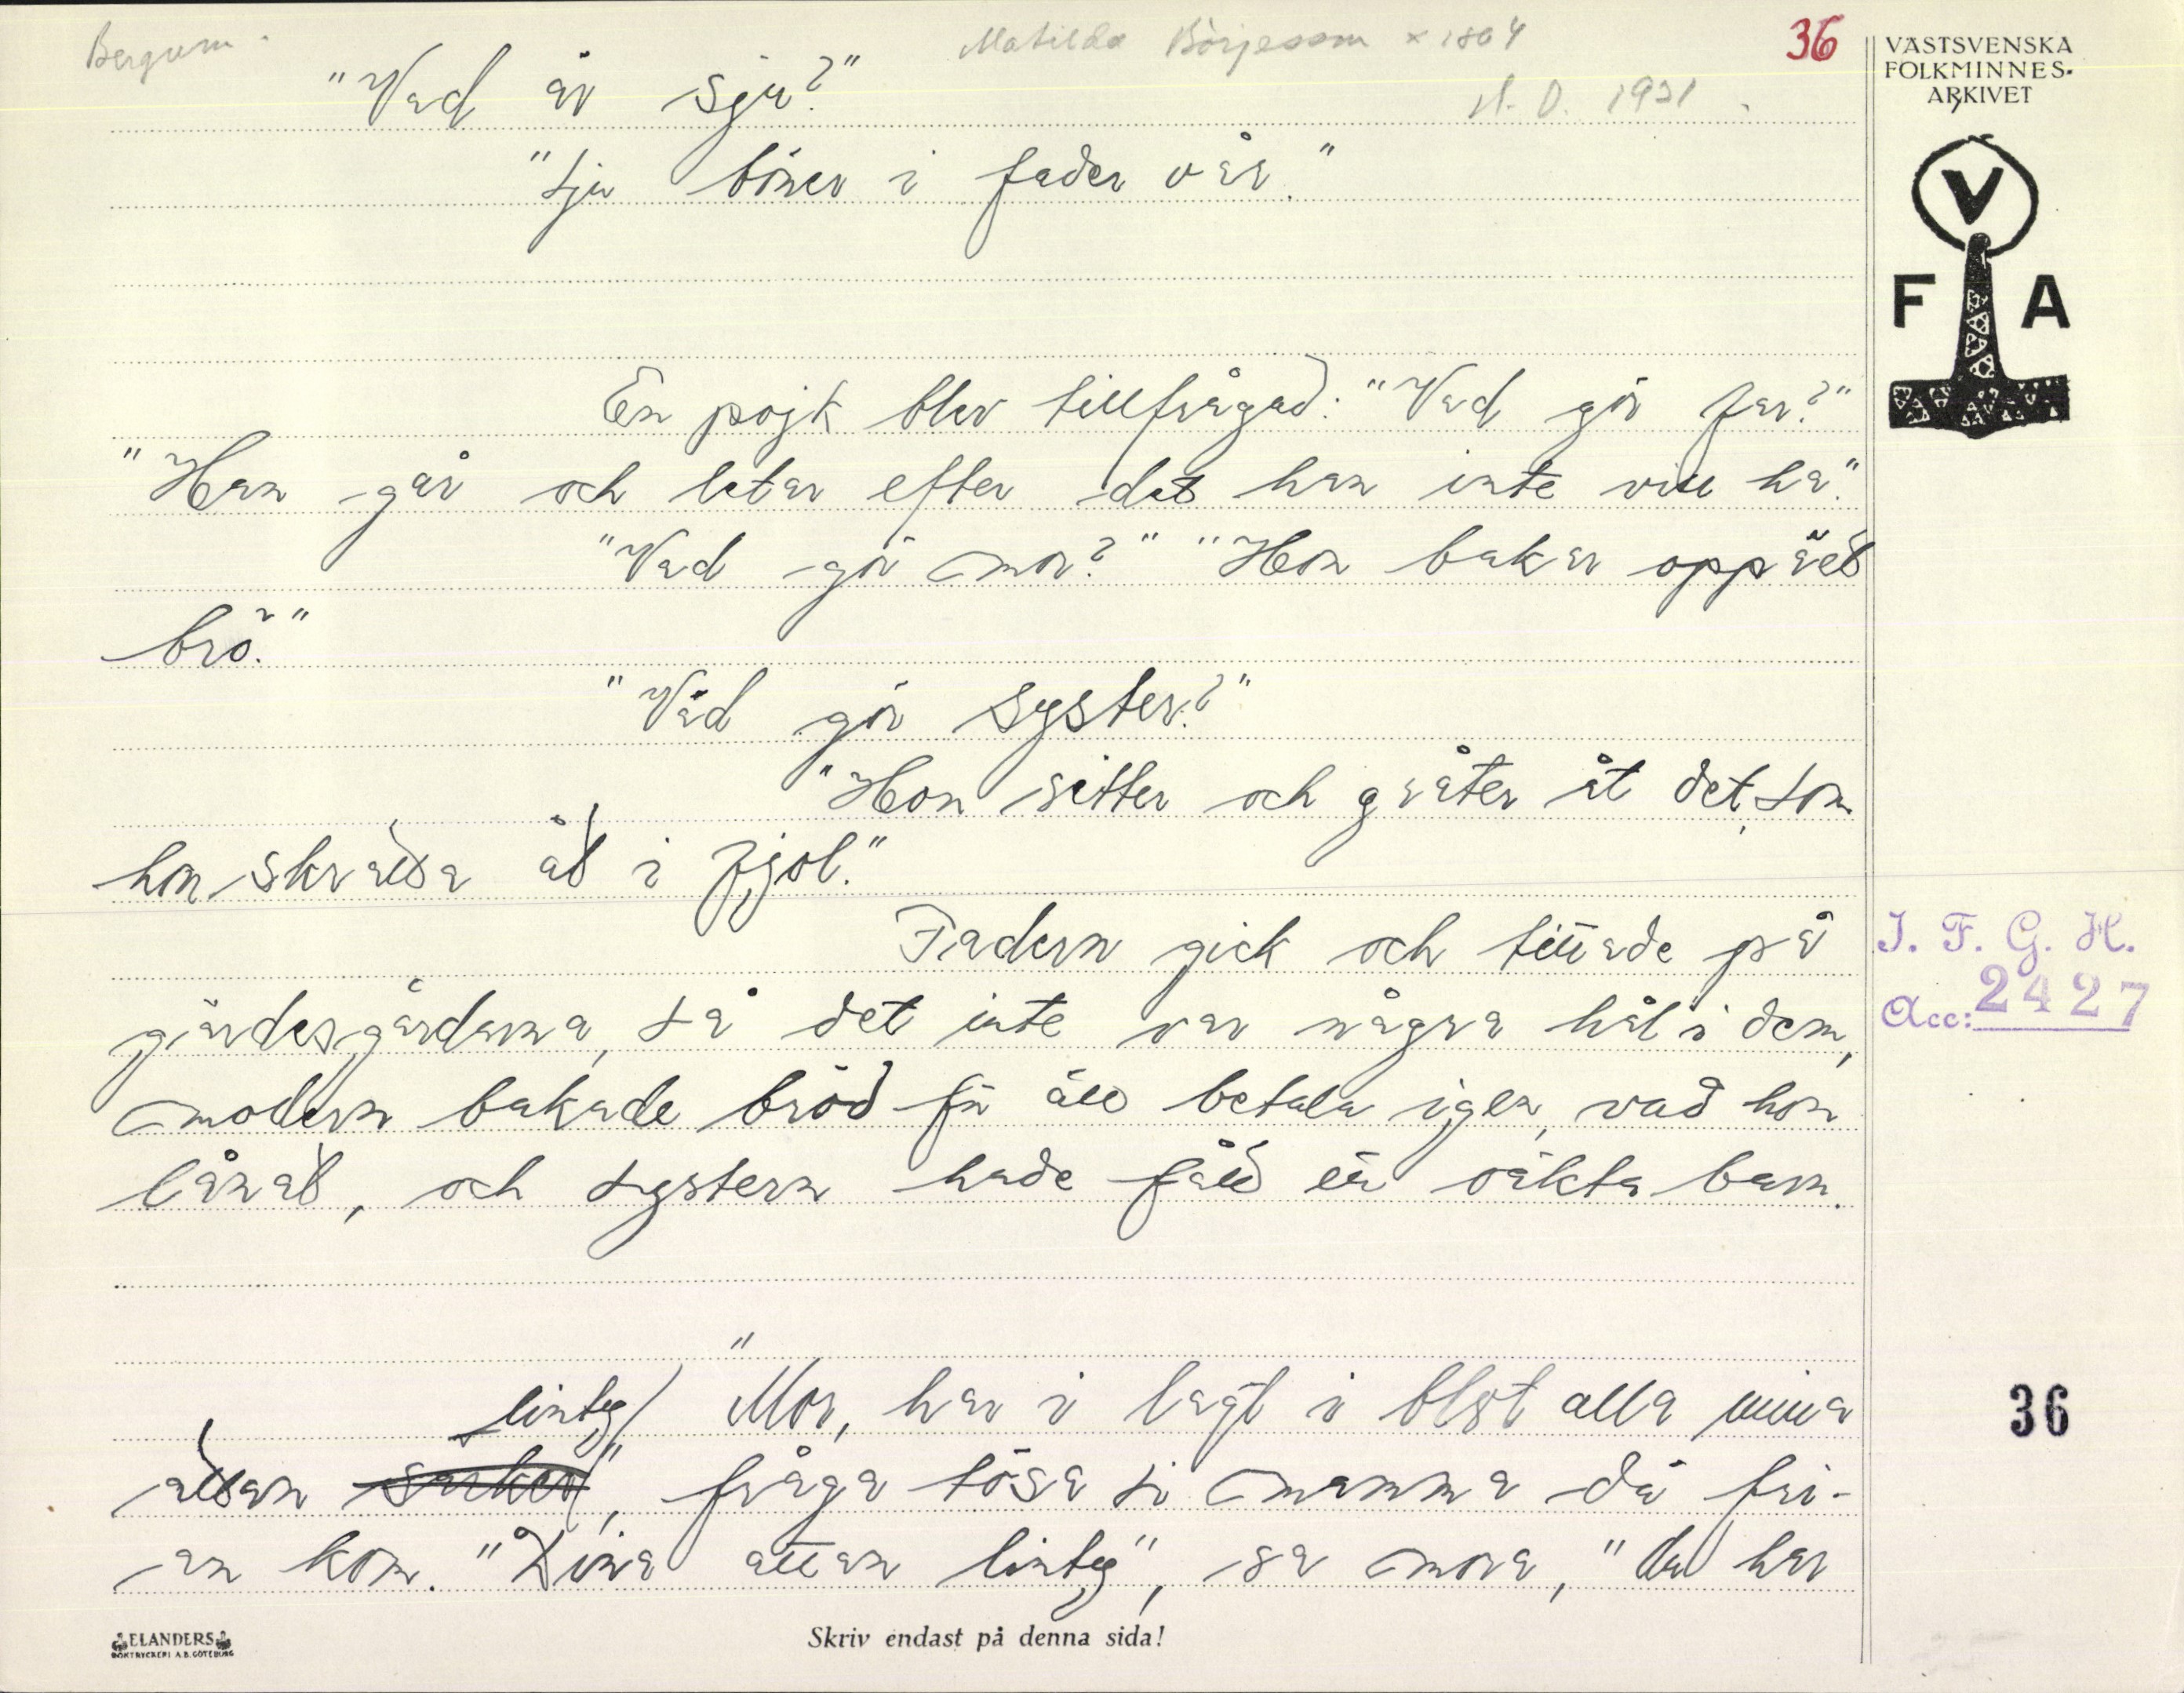 Bergum.
Matilda Börjesson * 1864
36
1931.
"Vad är sju?"
"Sju böner i fader vår."
En pojk blev tillfrågad: "Vad gör far?"
"Han går och letar efter det han inte vill ha."
"Vad gör mor?" "Hon bakar oppäet
brö."
"Vad gör syster?"
"Hon sitter och gråter åt det, som
hon skratta åt i fjol."
Fadern gick och tittade på
gärdesgårdarna, så det inte var några hål i dem,
modern bakade bröd för att betala igen, vad hon
lånat, och systern hade fått ett oäkta barn.
"Mor, har i lagt i blöt alla mina
linty
attan särkar", fråga tösa si mamma då fri-
an kom. "Dina attan linty", sa mora, "du har
VÄSTSVENSKA
FOLKMINNES-
ARKIVET
V
F A
I. F. G. H.
Acc: 2427
36
ELANDERS
BOKTRYCKERI A.B. GÖTEBORG
Skriv endast på denna sida!